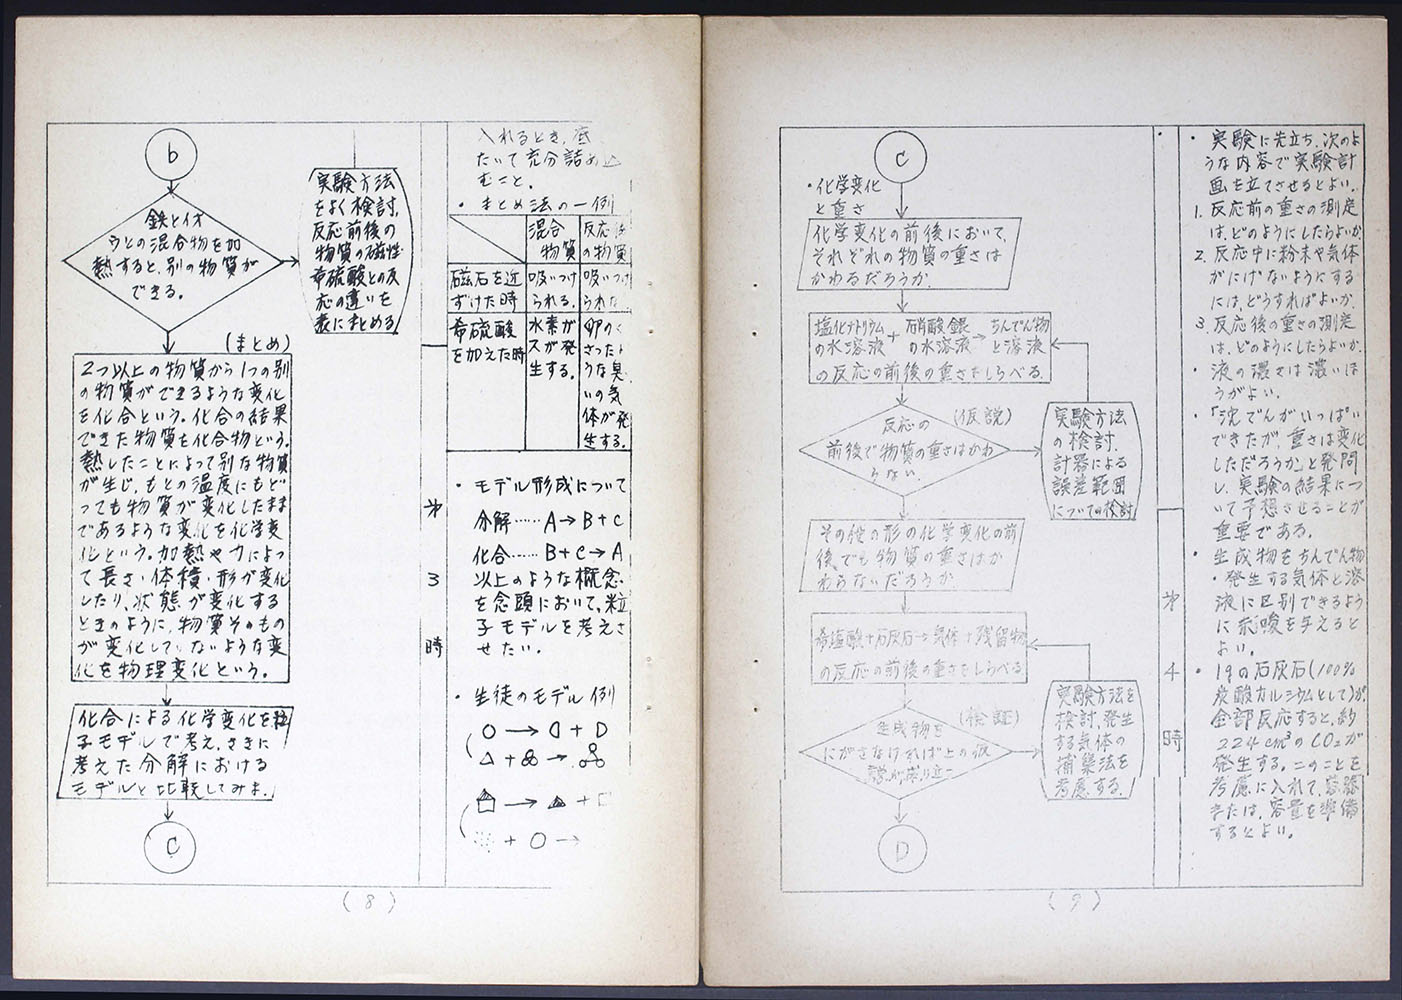 b
鉄とイオ
ウとの混合物を加
熱すると、別の物質が
できる。
実験方法
をよく検討、
反応前後の
物質の磁性
希硫酸との反
応の違いを
表にまとめる
(まとめ)
2つ以上の物質から1つの別
の物質ができるような変化
を化合という。化合の結果
できた物質を化合物という。
熱したことによって別な物質
が生じ、もとの温度にもど
っても物質が変化したまま
であるような変化を化学変
化という。加熱や力によっ
て長さ・体積・形が変化
したり、状態が変化する
ときのように、物質そのもの
が変化していないような変
化を物理変化という。
化合による化学変化を粒
子モデルで考え、さきに
考えた分解における
モデルと比較してみよ.
C
才
3
時
入れるとき、底
たいて充分詰め込
むこと。
・まとめ法の一例
混合
物質
反応
の物質
磁石を近
ずけた時
吸いつけ
られる.
吸いつけ
られな
希硫酸
を加えた時
水素が
ス発
生する.
卵のく
さったよ
うな臭
いの気
体が発
生する.
・モデル形成について
分解……A→B+C
化合……B+C→A
以上のような概念.
を念頭において、粒
子モデルを考えさ
せたい。
・生徒のモデル例
(8)
C
・化学変化
と重さ
化学変化の前後において、
それぞれの物質の重さは
かわるだろうか.
塩化ナトリウム
の水溶液
+
硝酸銀
の水溶液
→
ちんでん物
と溶液
の反応の前後の重さをしらべる.
(仮説)
反応の
前後で物質の重さはかわ
らない.
実験方法
の検討.
計器による
誤差範囲
についての検討
その他の形の化学変化の前
後でも物質の重さはか
わらないだろうか
希塩酸+石灰石→気体+残留物
の反応の前後の重さをしらべる
(検証)
生成物を
にがさなければ上の仮
説が成り立つ
実験方法を
検討、発生
する気体の
捕集法を
考慮する.
D
才
4
時
・実験に先立ち、次のよ
うな内容で実験計
画を立てさせるとよい.
1. 反応前の重さの測定
は、どのようにしたらよいか.
2. 反応中に粉末や気体
がにげないようにする
には、どうすればよいか.
3. 反応後の重さの測定
は、どのようにしたらよいか.
・液の濃さは濃いほ
うがよい.
・「沈でんがいっぱい
できたが、重さは変化
しただろうか」と発問
し、実験の結果につ
いて予想させることが
重要である.
・生成物をちんでん物
・発生する気体と溶
液に区別できるよう
に示唆を与えると
よい
・1gの石灰石(100%
炭酸カルシウムとして)が
全部反応すると、約
224cm³のCO₂が
発生する。このことを
考慮に入れて、容器
または、容量を準備
するとよい。
(9)